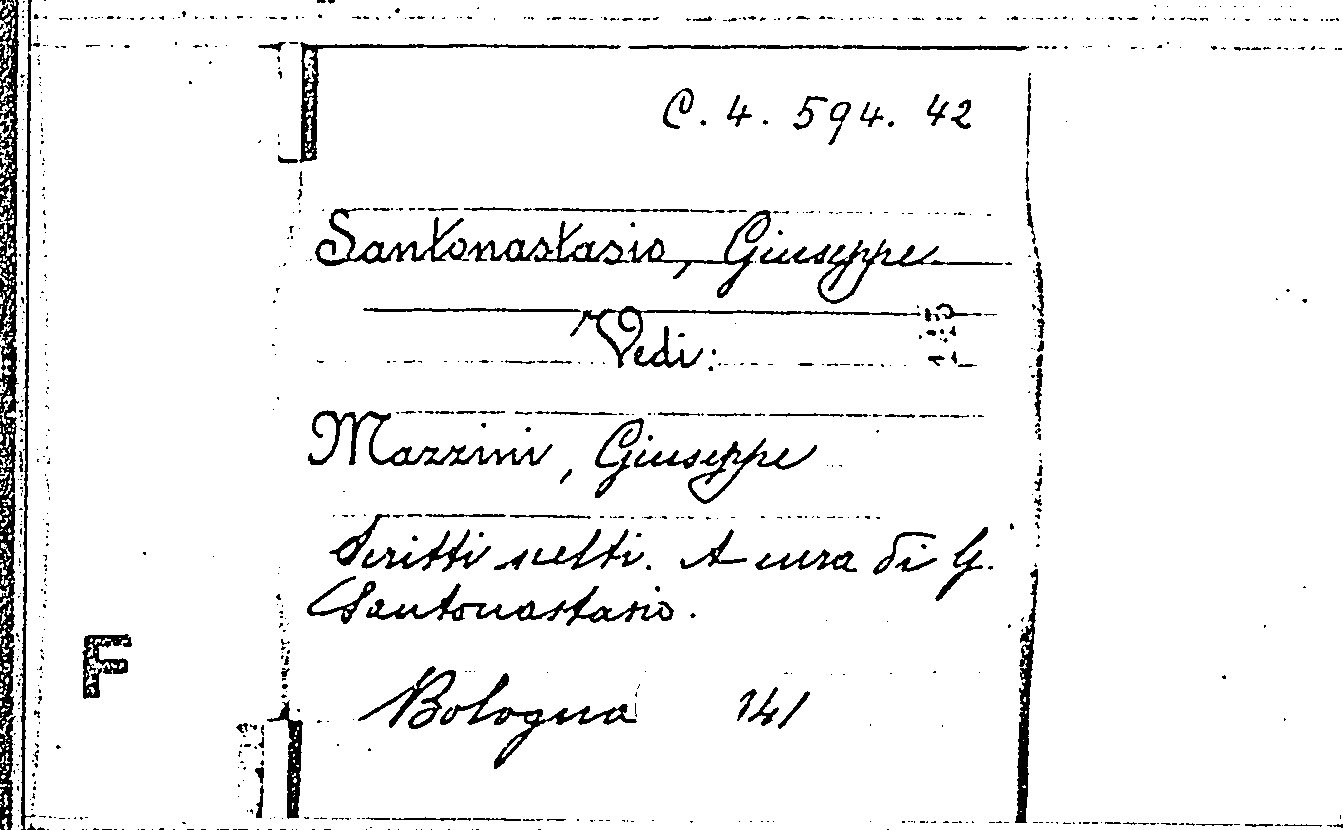 C. 4. 594. 42
Santonastasio, Giuseppe
Vedi:
Mazzini, Giuseppe
Scritti scelti. A cura di G.
Santonastasio.
F
Bologna 141